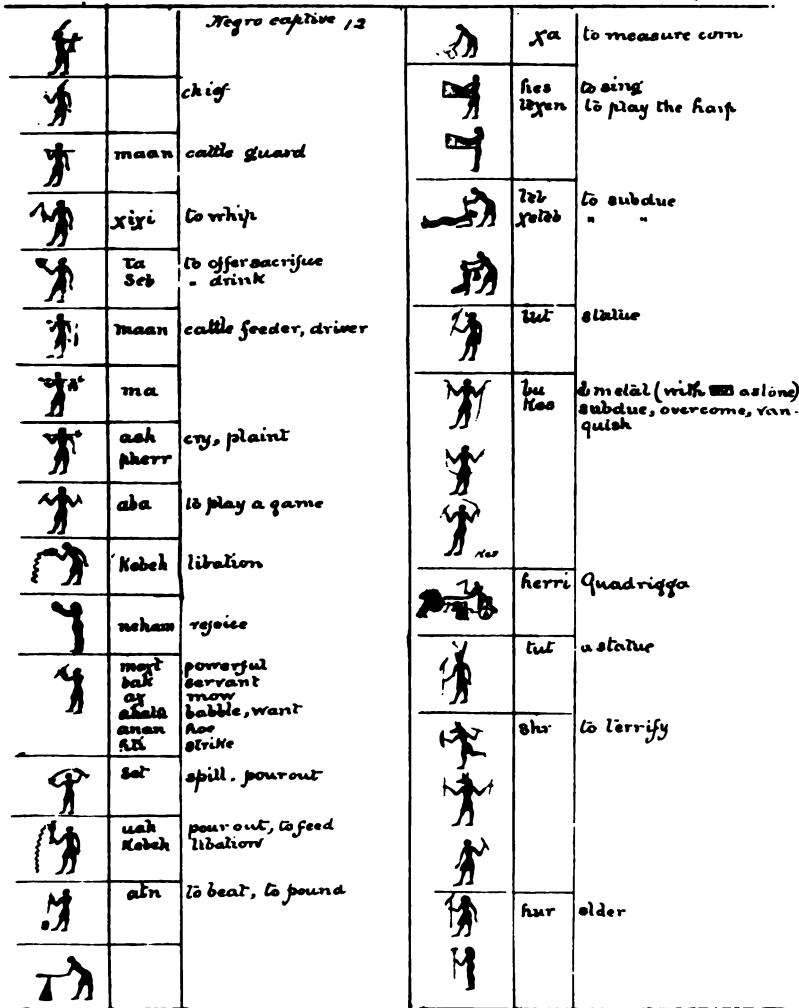 Negro captive 12
chief
maan cattle guard
xixi to whip
ta to offer sacrifice
Seb " drink
maan cattle feeder, driver
ma
ash cry, plaint
pherr
aba to play a game
Kebeh libation
neham rejoice
powerful
bak servant
mow
babble, want
anan hoe
strike
set spill, pour out
uah pour out, to feed
Kebeh libation
atn to beat, to pound
xa to measure corn
hes to sing
to play the harp
to subdue
" "
tut statue
metal (with a stone)
subdue, overcome, van-
quish
herri Quadrigga
tut a statue
shr to terrify
hur older